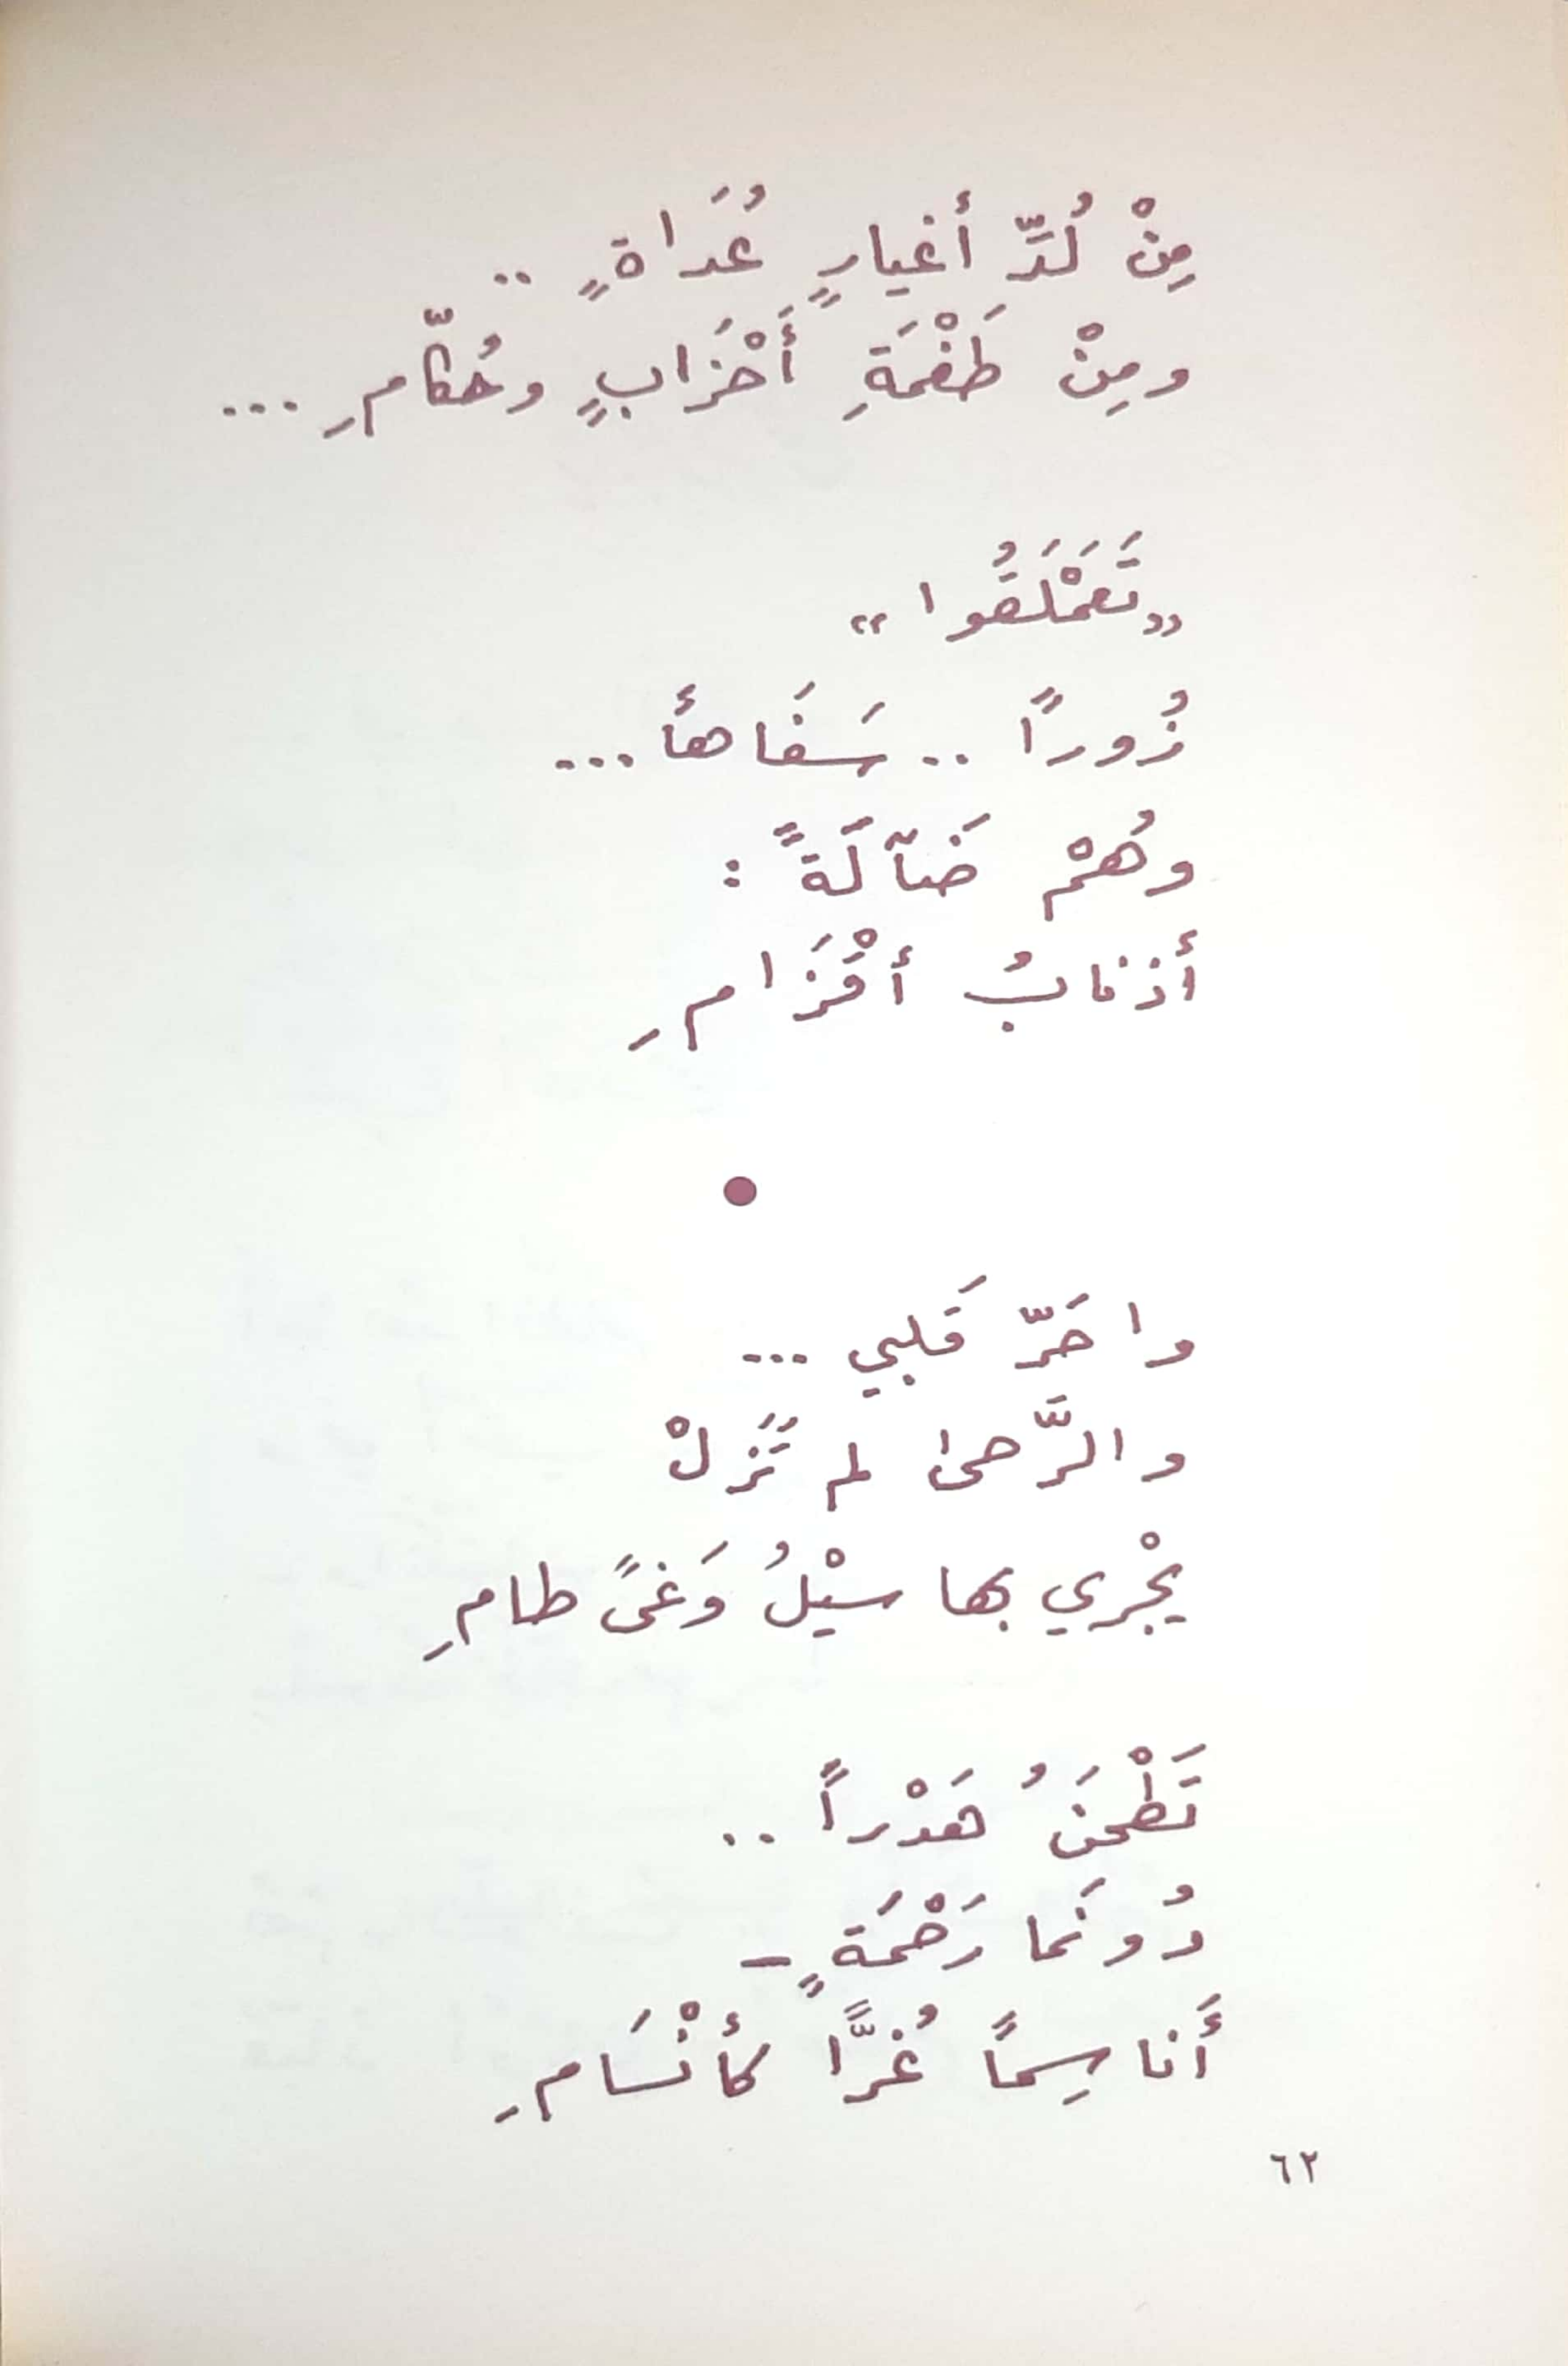 مِنْ لُدِّ أغيارٍ عُدَاةٍ ..
ومِنْ طَغْمَةِ أَحْزَابٍ وحُكّامِ ...
«تَعَمْلَقُوا»
زُوراً .. سَفَاهاً ...
وهُمْ ضَآلَةً :
أذنابُ أقْزَامِ
●
وا حَرّ قَلبي ...
والرَّحىٰ لم تَزَلْ
يجْري بها سيْلُ وَغىً طامِ
تَطْحَنُ هَدْراً ..
دُونَما رَحْمَةٍ -
أَناسِماً غُرًّا كأنْسَامِ
٦٢